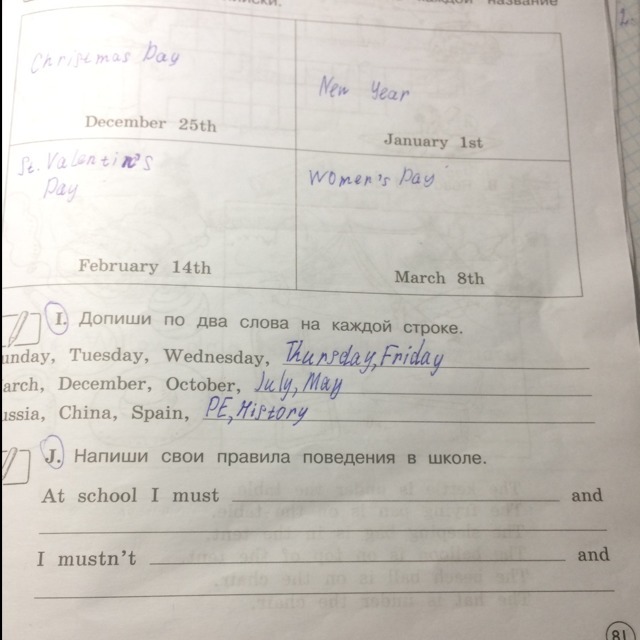 каждой название
Christmas Day
December 25th
New Year
January 1st
St. Valentin's
Day
February 14th
Women's Day
March 8th
I. Допиши по два слова на каждой строке.
unday, Tuesday, Wednesday, Thursday, Friday
arch, December, October, July, May
ussia, China, Spain, PE, History
J. Напиши свои правила поведения в школе.
At school I must and
I mustn't and
81